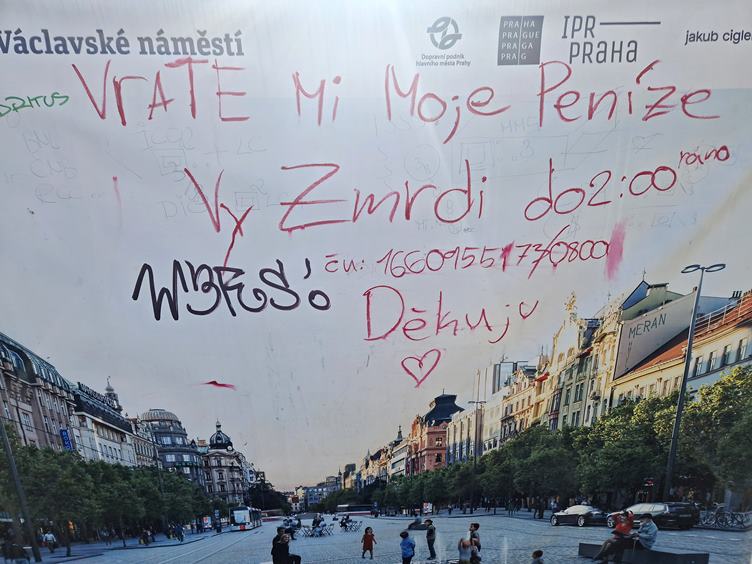 Václavské náměstí
Dopravní podnik
hlavního města Prahy
PRAHA
PRAGUE
PRAGA
PRAG
IPR
PRAHA
VrATE Mi Moje Peníze
Vy Zmrdi do 2:00 ráno
čú: 1660955173/0800
Děkuju
MERAN